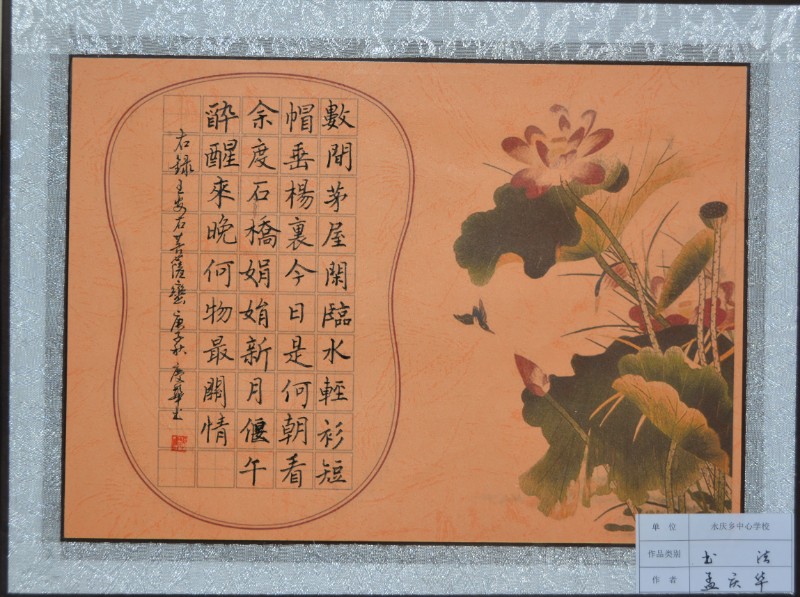 數間茅屋閑臨水輕衫短
帽垂楊裏今日是何朝看
余度石橋娟娟新月偃午
醉醒來晚何物最關情
右錄王安石菩薩蠻庚子秋慶華书
单位 永庆乡中心学校
作品类别 书法
作者 孟庆华